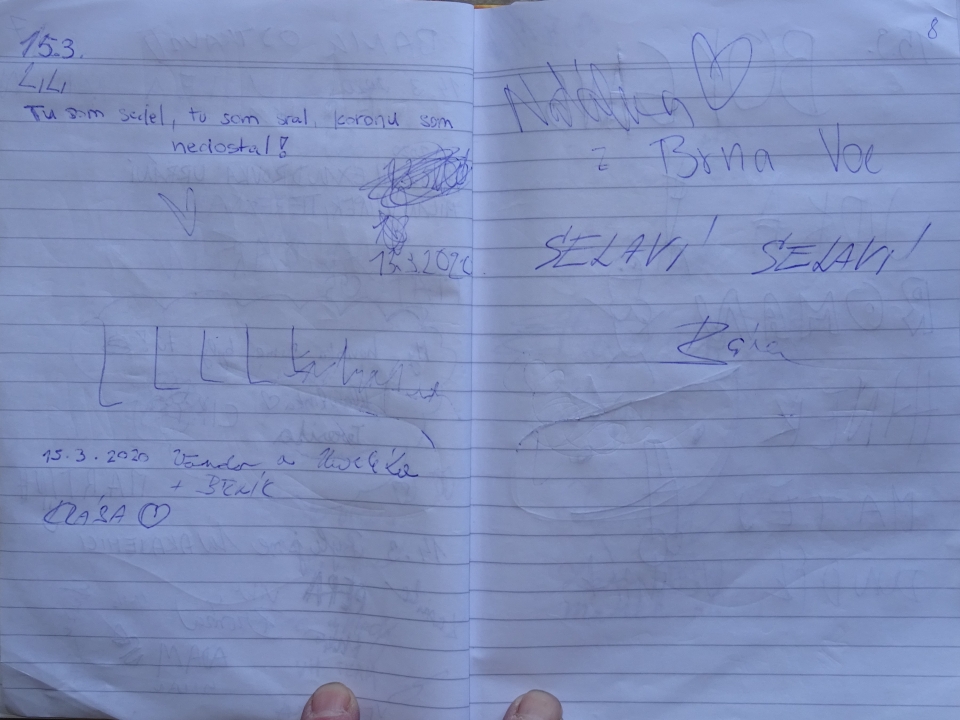 15.3.
Lili
Tu som sedel, tu som sral, koronu som
nedostal!
15.3.2020
15.3.2020 Vandor a
+ BRNÍK
KRÁSA
8
Natálka
z Brna Voe
SELAVI! SELAVI!